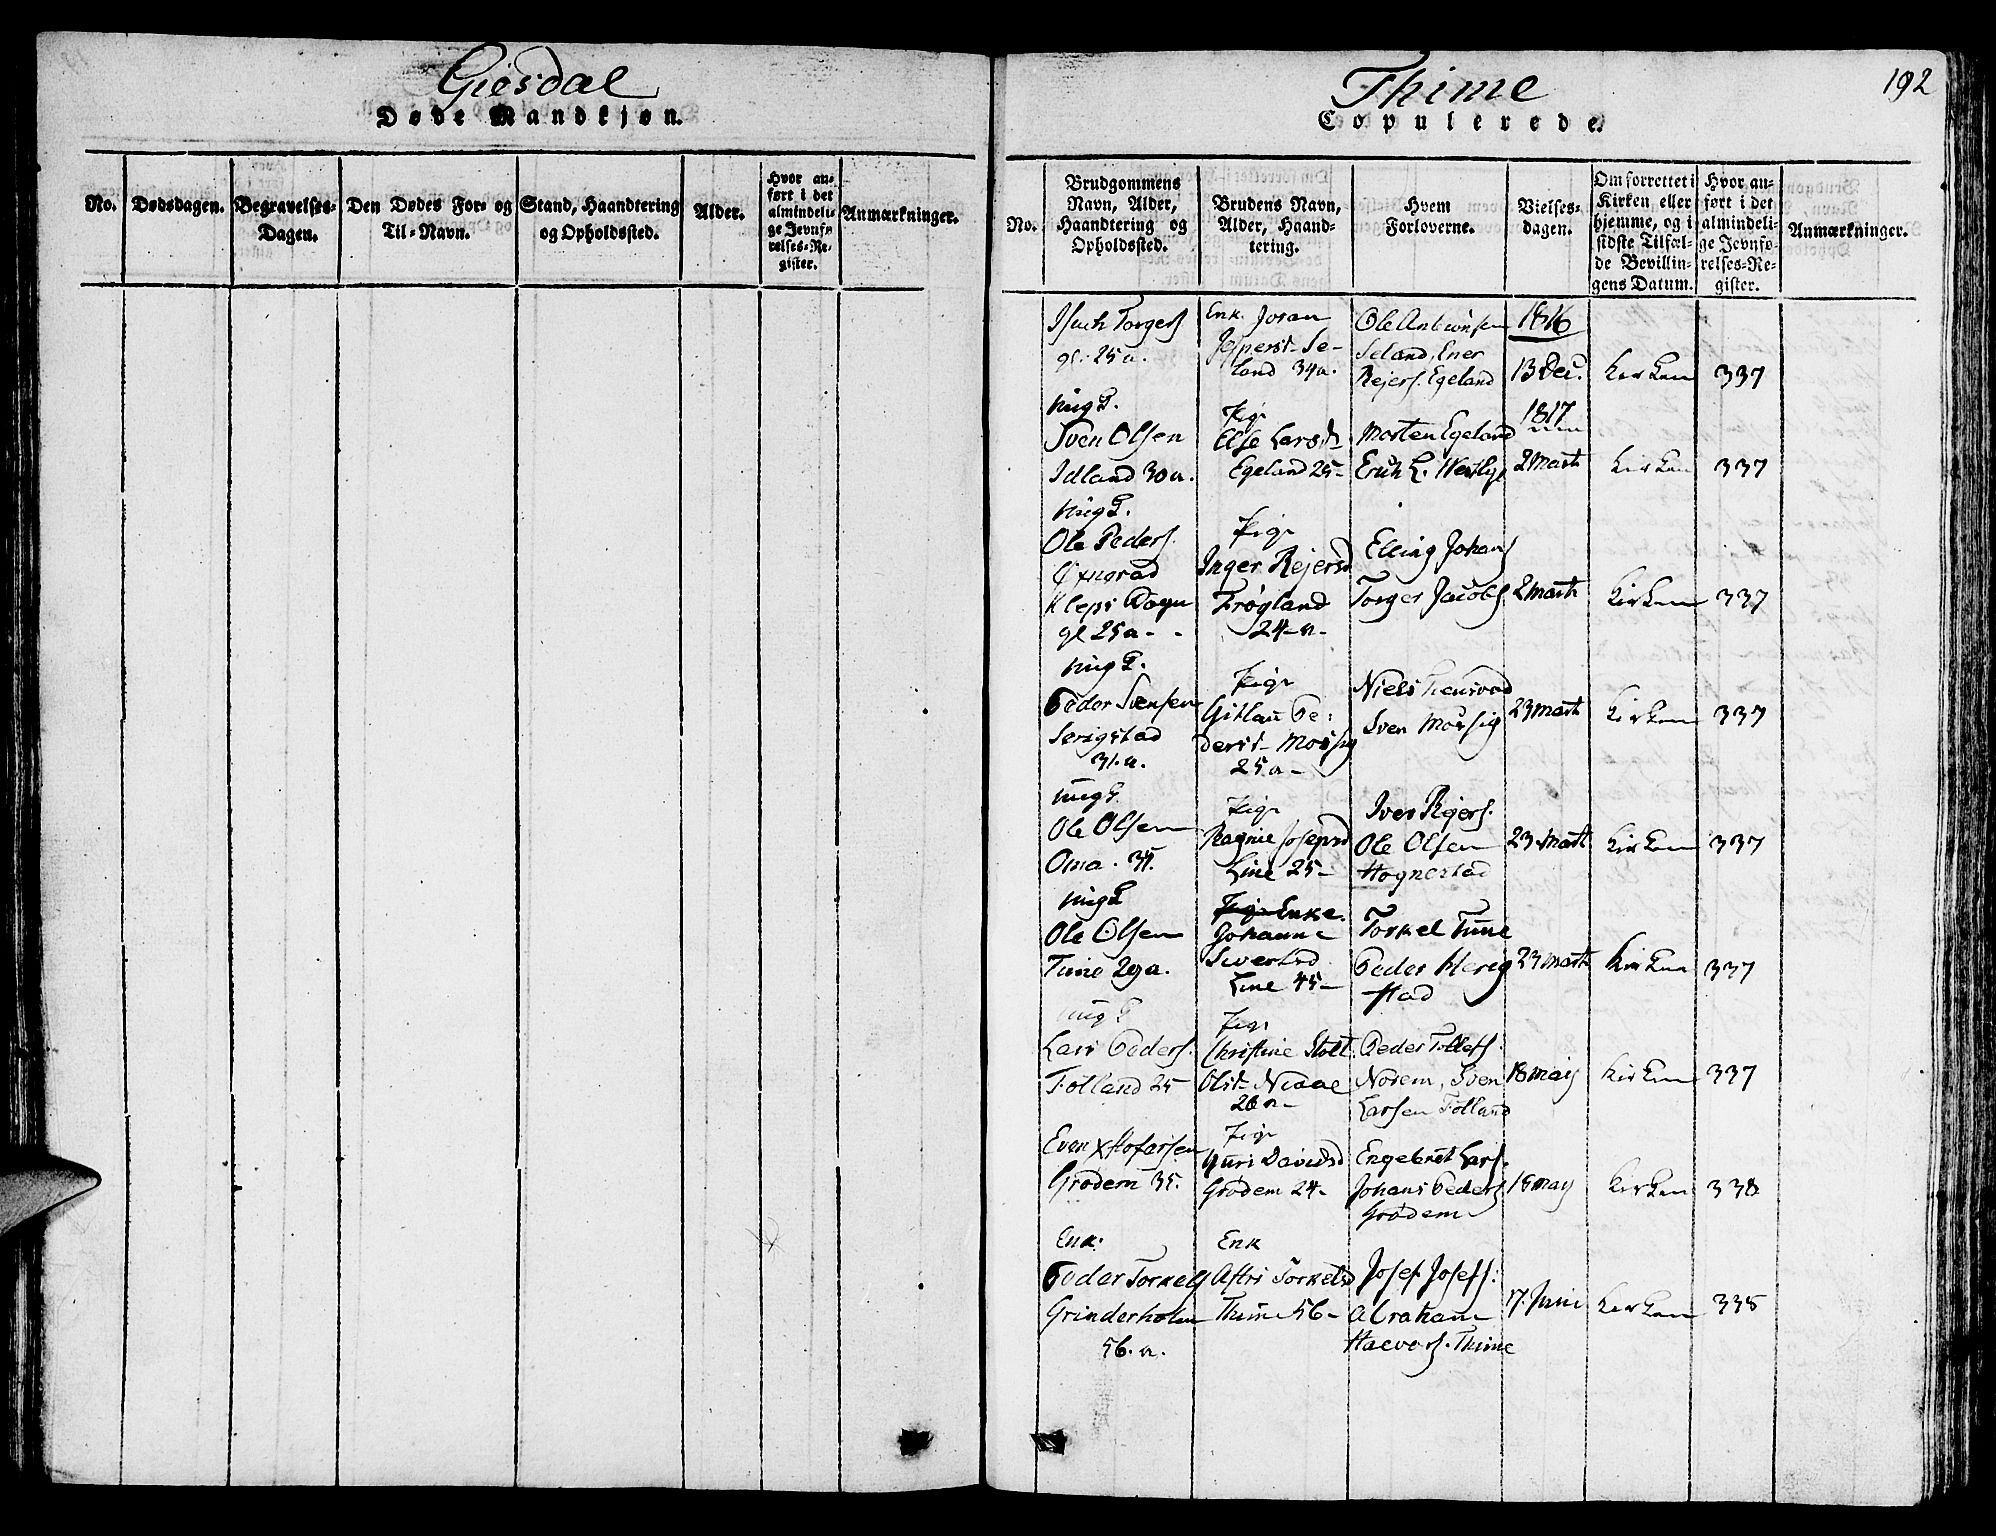 Giesdal
Døde Mandkjøn.
No.
Dødsdagen.
Begravelses-
Dagen.
Den Dødes For- og
Til-Navn.
Stand, Haandtering
og Opholdssted.
Alder.
Hvor an-
ført i det
almindeli-
ge Jevnfø-
relses-Re-
gister.
Anmærkninger.
Thime
192
Copulerede.
No.
Brudgommens
Navn, Alder,
Haandtering og
Opholdssted.
Brudens Navn,
Alder, Haand-
tering.
Hvem
Forloverne.
Vielses-
dagen.
Om forrettet i
Kirken eller
hjemme, og i
sidste Tilfæl-
de Bevillin-
gens Datum.
Hvor an-
ført i det
almindeli-
ge Jevnfø-
relses-Re-
gister.
Anmærkninger.
Torgers
gl. 25 a.
Enk. Joran
Jespersd. Se-
land 34 a.
Ole
Seland, Ener
Rejers. Egeland
1816
13 Dec.
Kirken
337
ungk.
Sven Olsen
Idland 30 a.
Pige
Else Larsd.
Egeland 25-
Morten Egeland
Erich L.
1817
2 Marts
Kirken
337
ungk.
Ole Peders.
gl 25 a-
Pige
Inger Rejersd
Frøgland
24-a-
Elling Johans
Torger Jacobs
2 Marts
Kirken
337
ungk.
Peder Svensen
Serigstad
31. a.
Pige
Pe-
dersd- Mossig
25 a-
Niels
Sven Mossig
23 Marts
Kirken
337
ungk.
Ole Olsen
Oma. 35.
Pige
Ragnie Josepsd
Line 25-
Iver Rejers.
Ole Olsen
Hognestad
23 Marts
Kirken
337
ungk
Ole Olsen
Time 29 a.
Pige Enke.
Johanne
Sivertsd
Line 45-
Torkel Time
Peder Herig
stad
23 Marts
Kirken
337
ungk
Lars Peders.
Folland 25-
Pige
Christine Stolt
Olsd-
26 a-
Peder Tollefs:
Norem, Sven
Larsen Folland
18 May
Kirken
337
Even Xstofersen
Grødem 35.
Pige
Guri Davidsd
Grødem 24-
Engebret Lars.
Johans Peders
Grødem
18 May
Kirken
338
Enk.
Peder Torkels
Grinderholm
56. a.
Enk
Astri Torkelsd
Thime 56-
Josef Josefs:
Abraham
Thime
17. Juni
Kirken
338